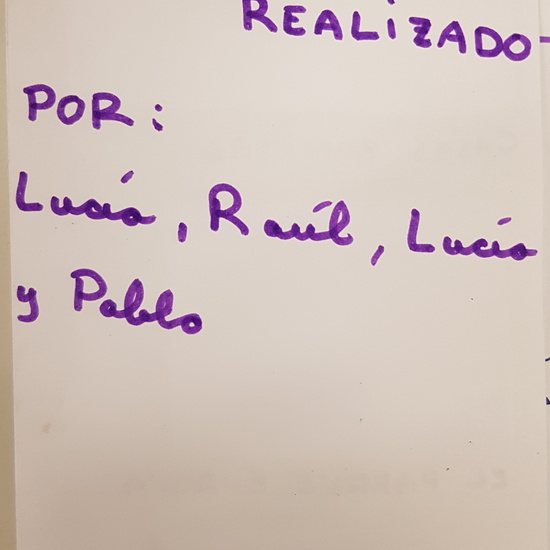 REALIZADO
POR:
Lucía, Raúl, Lucía
y Pablo